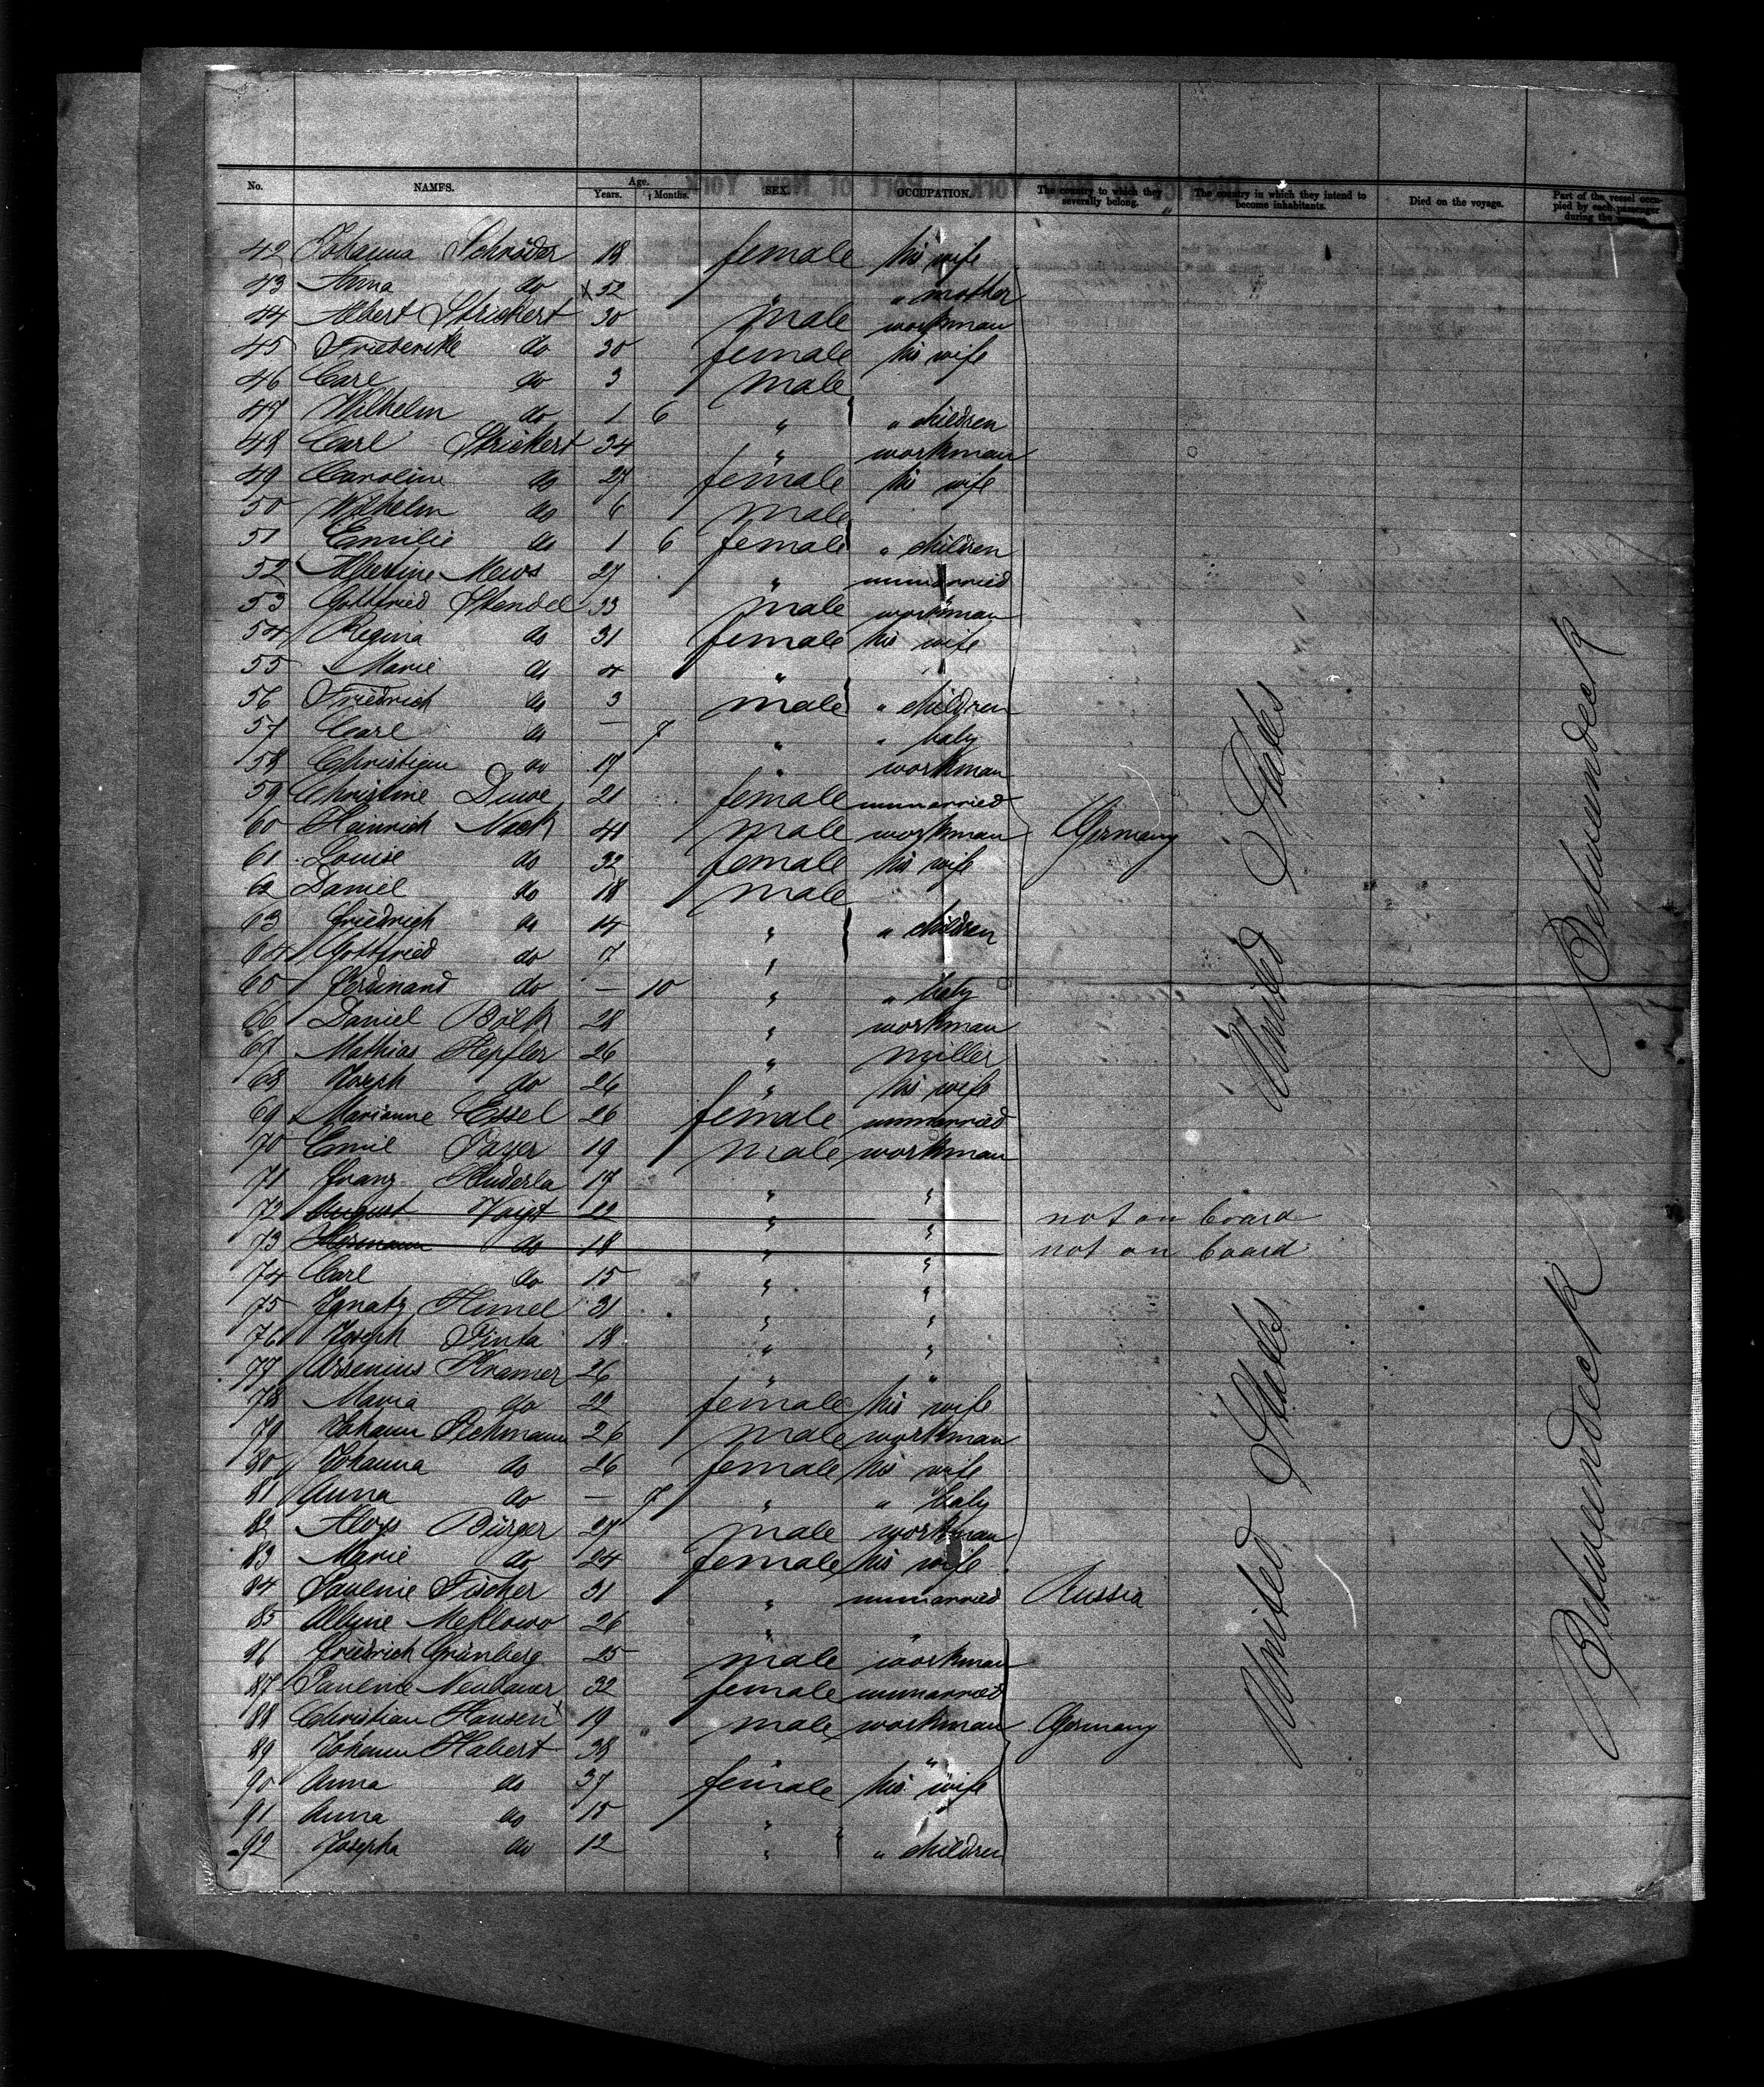 District of New York, Port of New York
No. NAMES. Age. Years. Months. SEX. OCCUPATION. The country to which they severally belong. The country in which they intend to become inhabitants. Died on the voyage. Part of the vessel occupied by each passenger during the
42 Johanna Schröder 18 female his wife
43 Anna do x 52 " " mother
44 Albert Strickert 30 male workman
45 Friederike do 30 female his wife
46 Carl do 3 male
47 Wilhelm do 1 6 " " children
48 Carl Strickert 34 " workman
49 Caroline do 27 female his wife
50 Wilhelm do 6 male
51 Emilie do 1 6 female " children
52 Albertine Mews 27 " unmarried
53 Gottfried Stendel 33 male workman
54 Regina do 31 female his wife
55 Marie do 4 "
56 Friedrich do 3 male " children
57 Carl do — 7 " " baby
58 Christian do 17 " workman
59 Christine Duwe 21 female unmarried
60 Heinrich Nack 41 male workman Germany
61 Louise do 32 female his wife
62 Daniel do 18 male
63 Friedrich do 14 " " children
64 Gottfried do 7 "
65 Ferdinand do — 10 " " baby
66 Daniel Bölk 28 " workman
67 Mathias Hepfler 26 " miller
68 Joseph do 26 " his wife
69 Marianne Essel 26 female unmarried
70 Emil Payer 19 male workman
71 Franz Huderla 17 " "
72 August Voigt 22 " " not on board
73 Hermann do 18 " " not on board
74 Carl do 15 " "
75 Ignatz Himel 31 " "
76 Joseph Pinta 18 " "
77 Arsenius Kramer 26 " "
78 Maria do 22 female his wife
79 Johann Rehmann 26 male workman
80 Johanna do 26 female his wife
81 Anna do — 7 " " baby
82 Aloys Bürger 27 male workman
83 Marie do 24 female his wife
84 Pauline Fischer 31 " unmarried Russia
85 26 " "
86 Friedrich Grünberg 25 male workman
87 Pauline Neubauer 32 female unmarried
88 Christian Hansen 19 " male workman Germany
89 Johann Habert 38 "
90 Anna do 37 female his wife
91 Anna do 15 "
92 Josepha do 12 " " children
United States
Betweendeck
United States
Betweendeck